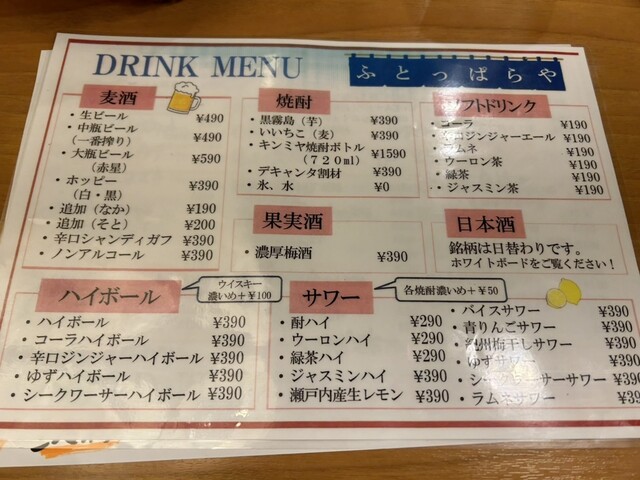 DRINK MENU
ふとっぱらや
麦酒
・生ビール ¥490
・中瓶ビール
（一番搾り） ¥490
・大瓶ビール ¥590
（赤星）
・ホッピー ¥390
（白・黒）
・追加（なか） ¥190
・追加（そと） ¥200
・辛口シャンディガフ ¥390
・ノンアルコール ¥390
焼酎
・黒霧島（芋） ¥390
・いいちこ（麦） ¥390
・キンミヤ焼酎ボトル ¥1590
（７２０ml）
・デキャンタ割材 ¥390
・氷、水 ¥0
ソフトドリンク
・コーラ ¥190
・辛口ジンジャーエール ¥190
・ラムネ ¥190
・ウーロン茶 ¥190
・緑茶 ¥190
・ジャスミン茶 ¥190
果実酒
・濃厚梅酒 ¥390
日本酒
銘柄は日替わりです。
ホワイトボードをご覧ください！
ハイボール
ウイスキー
濃いめ＋¥100
・ハイボール ¥390
・コーラハイボール ¥390
・辛口ジンジャーハイボール ¥390
・ゆずハイボール ¥390
・シークワーサーハイボール ¥390
サワー
各焼酎濃いめ＋¥50
・酎ハイ ¥290
・ウーロンハイ ¥290
・緑茶ハイ ¥290
・ジャスミンハイ ¥290
・瀬戸内産生レモン ¥390
・バイスサワー ¥390
・青りんごサワー ¥390
・紀州梅干しサワー ¥390
・ゆずサワー ¥390
・シークワーサーサワー ¥390
・ラムネサワー ¥390